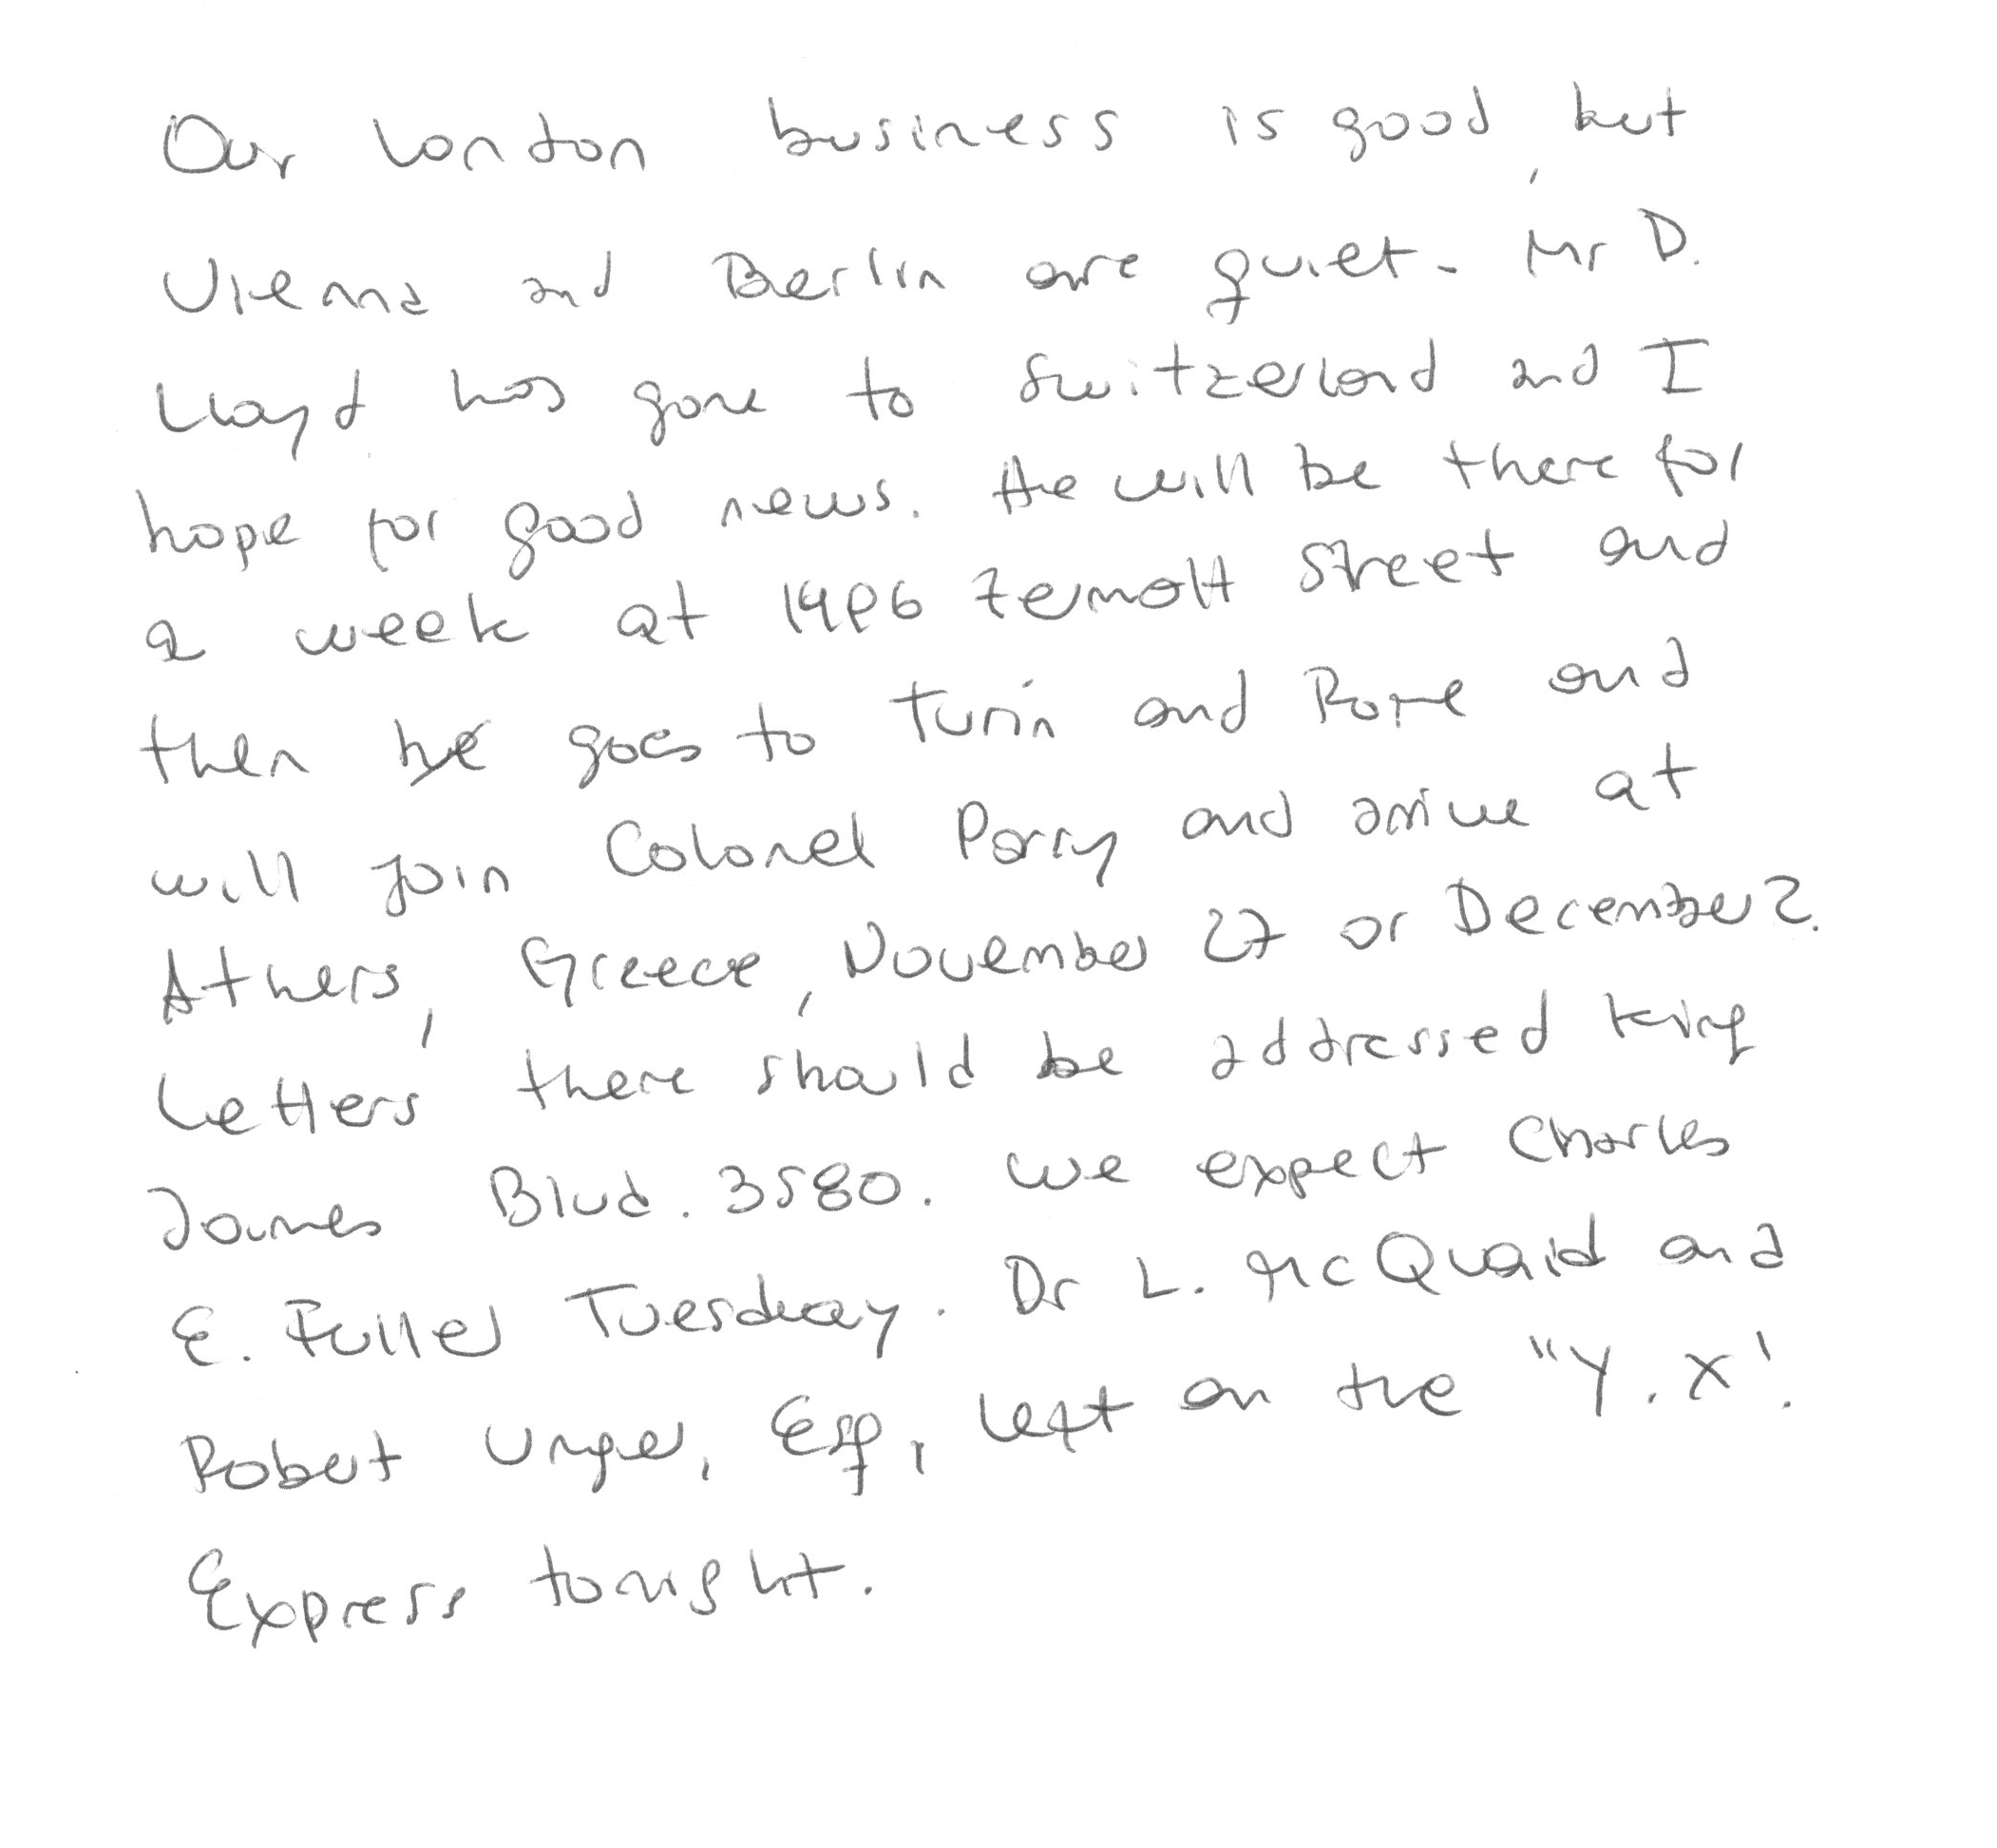 Our London business is good, but
Vienna and Berlin are quiet. Mr D.
Lloyd has gone to Switzerland and I
hope for good news. He will be there for
a week at 1496 Zermott Street and
then he goes to Turin and Rome and
will join Colonel Parry and arrive at
Athens, Greece, November 27 or December 2.
Letters there should be addressed King
James Blvd. 3580. We expect Charles
E. Fuller Tuesday. Dr L. McQuaid and
Robert Unger, Esq, left on the "Y.X".
Express tonight.